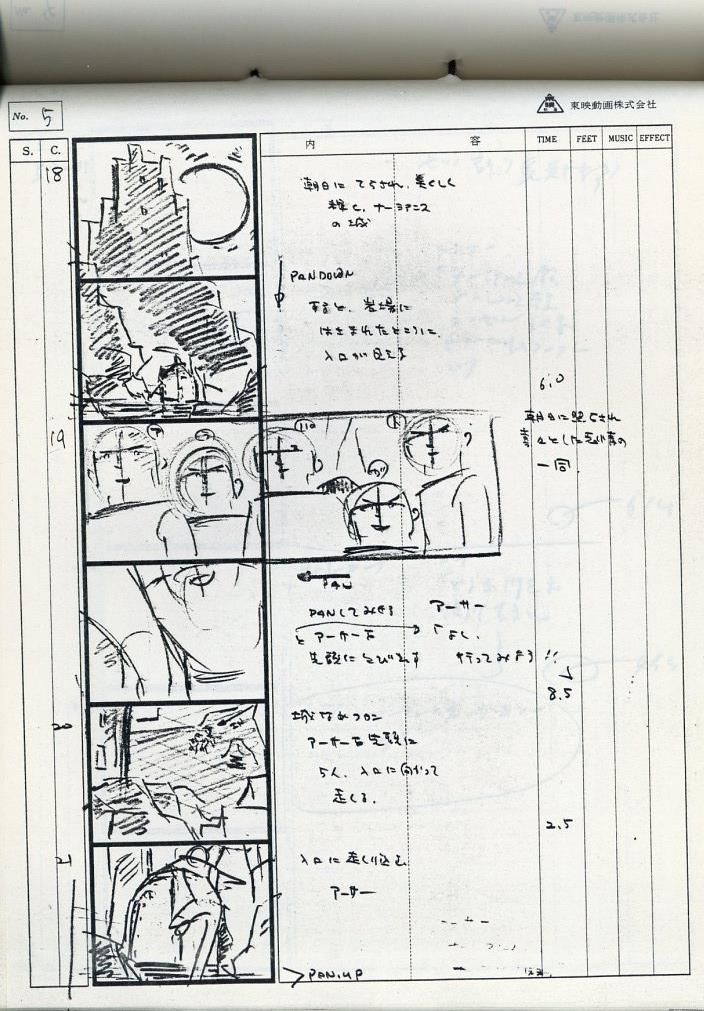 No. 5
東映動画株式会社
S. C. 内 容 TIME FEET MUSIC EFFECT
18
朝日にてらされ、美くしく
輝く、ナーシアニス
の城
PAN DOWN
すると、岩場に
はさまれたところに
入口が見える
6.0
19
朝日に照らされ
一同
PAN
PANしてみせる
とアーサーを
先頭にとび出す
アーサー
「よし、
行ってみよう!!」
8.5
城なめつつに
アーサーを先頭に
5人、入口に向かって
走る。
2.5
入口に走り込む
アーサー
PAN.UP